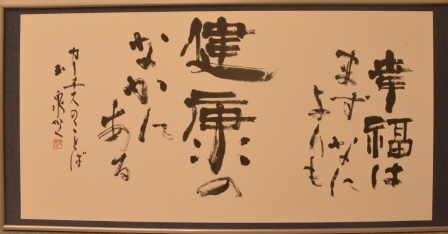 幸福は
まずなに
よりも
健康の
なかに
ある
カーチスのことば